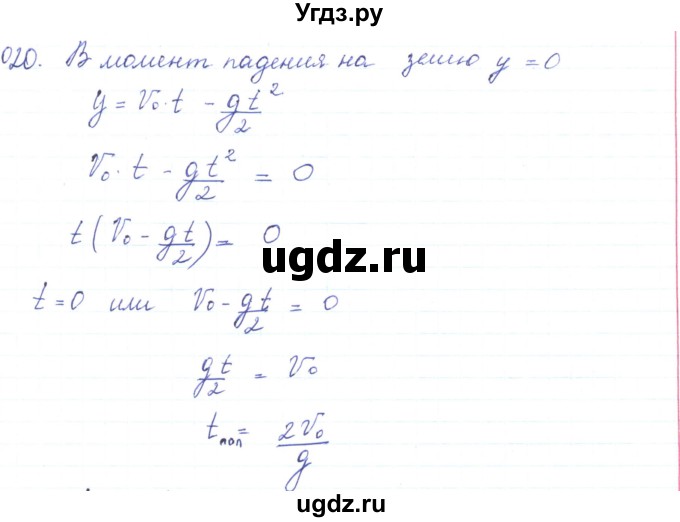 Угдз.ру
020. В момент падения на землю y = 0
y = V₀·t - gt²/2
V₀·t - gt²/2 = 0
t(V₀ - gt/2) = 0
ugdz.ru
t = 0 или V₀ - gt/2 = 0
gt/2 = V₀
tпол = 2V₀/g
ugdz.ru